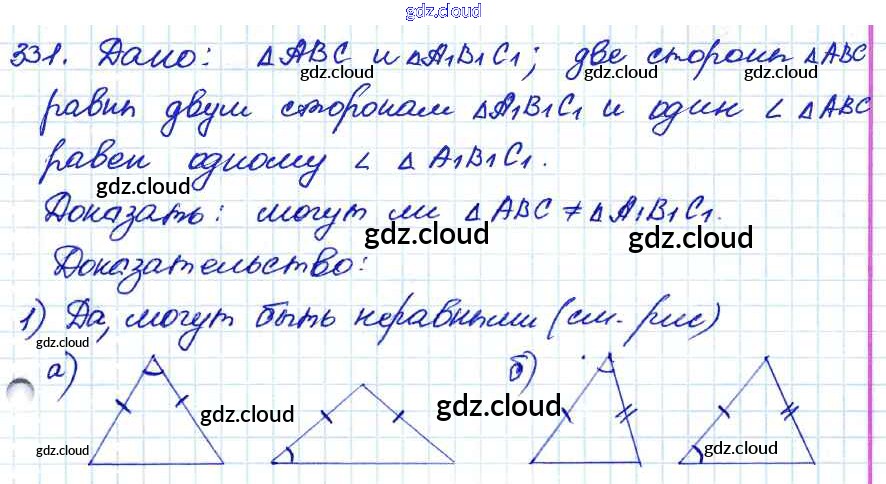 gdz.cloud
331. Дано: △ABC и △A₁B₁C₁; две стороны △ABC
gdz.cloud gdz.cloud
равны двум сторонам △A₁B₁C₁ и один ∠ △ABC
равен одному ∠ △ A₁B₁C₁.
gdz.cloud
Доказать: могут ли △ABC ≠ △A₁B₁C₁.
gdz.cloud gdz.cloud
Доказательство:
1) Да, могут быть неравными (см. рис)
gdz.cloud
а) б)
gdz.cloud gdz.cloud
gdz.cloud gdz.cloud